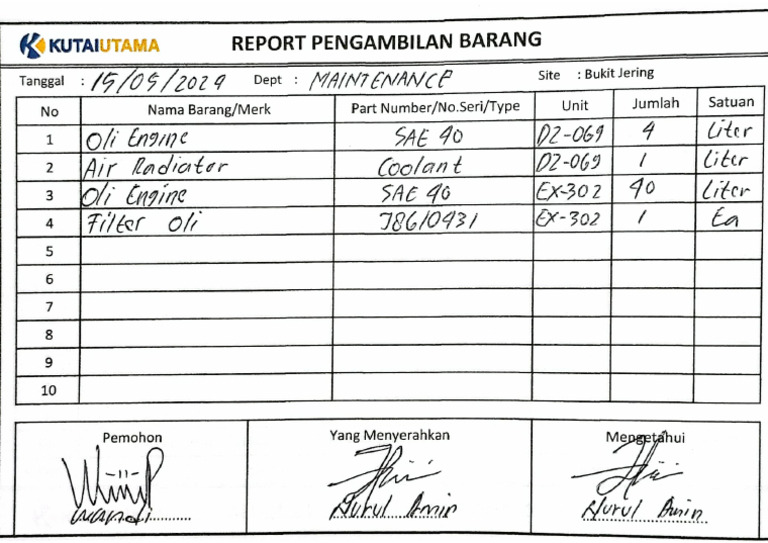 KUTAIUTAMA
REPORT PENGAMBILAN BARANG
Tanggal : 15/05/2024 Dept : MAINTENANCE Site : Bukit Jering
No Nama Barang/Merk Part Number/No.Seri/Type Unit Jumlah Satuan
1 Oli Engine SAE 40 DZ-069 4 Liter
2 Air Radiator Coolant DZ-069 1 Liter
3 Oli Engine SAE 40 EX-302 40 Liter
4 Filter Oli J8610431 EX-302 1 Ea
5
6
7
8
9
10
Pemohon Yang Menyerahkan Mengetahui
Wandi Nurul Amin Nurul Amin